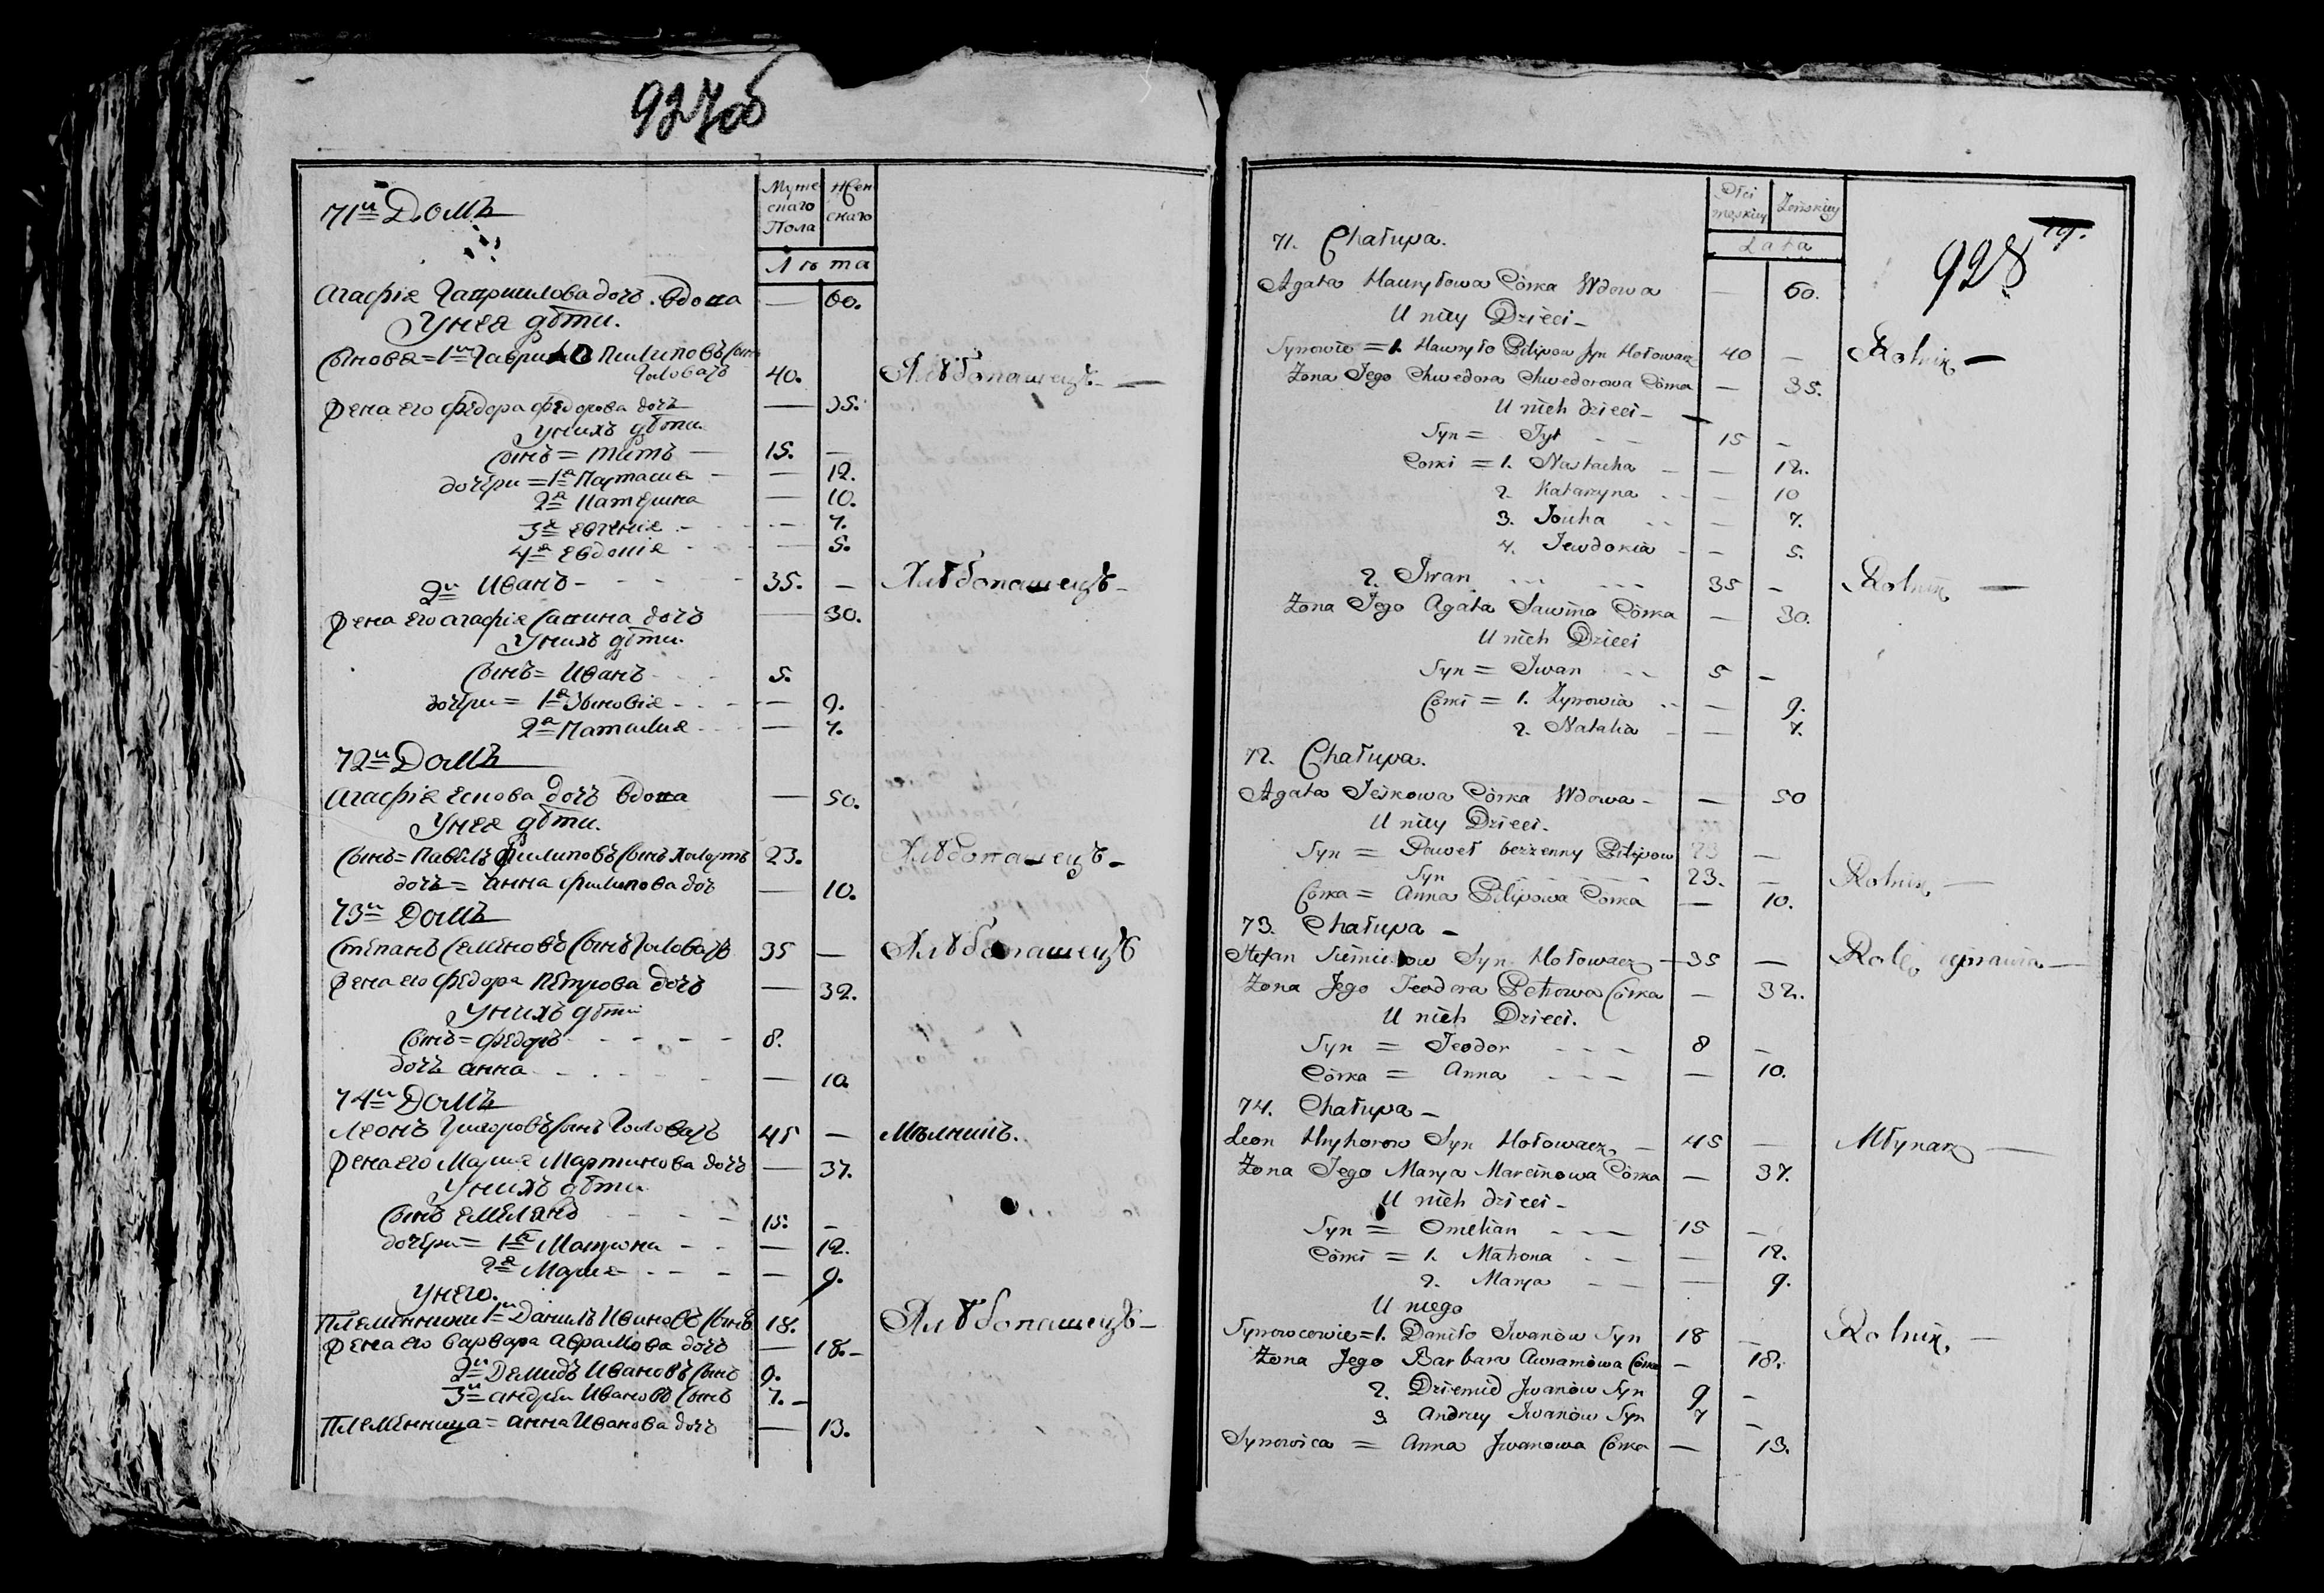 927об
71й Домъ
Муже
скаго
Пола
Жен
скаго
Лѣта
Агафiя Гаврилова дочь. вдова — 60.
У нея дѣти.
Сыновя = 1й Гаврило Пилиповъ сынъ
Головачъ 40. Хлѣбопашецъ —
Жена его Федора Федорова дочь — 35.
У нихъ дѣти
Сынъ = Титъ — 15. —
дочери = 1я Настасия — 12.
2я Катерина — 10.
3я Евгения — 7.
4я Евдокiя — 5.
2й Иванъ — 35. — Хлѣбопашецъ —
Жена его Агафiя Савина дочь — 30.
У нихъ дѣти.
Сынъ = Иванъ 5.
дочери = 1я Зѣновiя — 9.
2я Наталия — 7.
72й Домъ
Агафiя Ескова дочь вдова — 50.
У нея дѣти.
Сынъ = Павелъ Филиповъ сынъ 23. Хлѣбопашецъ —
дочь = Анна Филипова доч — 10.
73й Домъ
Степанъ Семеновъ сынъ Головачъ 35 — Хлѣбопашецъ
Жена его Федора Петрова дочь — 32.
У нихъ дѣти
Сынъ = Федоръ 8.
дочь Анна — 10.
74й Домъ
Леонъ Григоровъ сынъ Головачъ 45 — Мѣлникъ.
Жена его Мария Мартинова дочь — 37.
У нихъ дѣти
Сынъ Емелянъ 15. —
дочери = 1я Матрона — 12.
2я Мария — 9.
У него.
Племянники 1й Данилъ Ивановъ сынъ 18. Хлѣбопашецъ —
Жена его Варвара Аврамова дочь — 18. —
2й Демидъ Ивановъ сынъ 9.
3й Андрей Ивановъ сынъ 7. —
Племенница = Анна Иванова дочь — 13.
Płci
męskiey
Żeńskiey
Lata
928
71. Chałupa.
Agata Hawryłowa Córka Wdowa — 60.
U niey Dzieci —
Synowie = 1. Hawryło Pilipow Syn Hołowacz 40 — Rolnik —
Żona Jego Chwedora Chwedorowa Córka — 35.
U nich dzieci —
Syn = Tyt 15 —
Corki = 1. Nastacha — 12.
2. Katarzyna — 10
3. Jouha — 7.
4. Jewdokia — 5.
2. Iwan 35 — Rolnik —
Żona Jego Agata Sawina Córka — 30.
U nich Dzieci
Syn = Iwan 5 —
Corki = 1. Zynowia — 9.
2. Natalia — 7.
72. Chałupa.
Agata Jeśkowa Córka Wdowa — — 50
U niey Dzieci.
Syn = Paweł bezżenny Pilipow 23 —
Syn 23. — Rolnik —
Córka = Anna Pilipowa Corka — 10.
73. Chałupa —
Stefan Siemionow Syn Hołowacz — 35 — Rolę uprawia —
Żona Jego Teodora Petrowa Córka — 32.
U nich Dzieci.
Syn = Teodor 8 —
Córka = Anna — 10.
74. Chałupa —
Leon Hryhorow Syn Hołowacz — 45 — Młynarz —
Żona Jego Marya Marcinowa Córka — 37.
U nich dzieci —
Syn = Omelian 15 —
Córki = 1. Matrona — 12.
2. Marya — 9.
U niego
Synowcowie = 1. Daniło Iwanów Syn 18 — Rolnik, —
Żona Jego Barbara Awramówa Córka — 18.
2. Dziemid Iwanów Syn 9 —
3 Andrzey Iwanów Syn 7 —
Synowica = Anna Iwanowa Córka — 13.